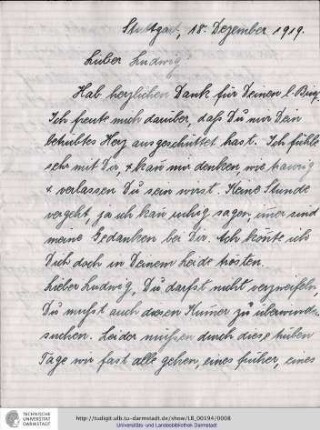 Stuttgart, 18. Dezember 1919.
Lieber Ludwig
Hab herzlichen Dank für Deinen l. Brief.
Ich freute mich darüber, daß Du mir Dein
betrübtes Herz ausgeschüttet hast. Ich fühle
sehr mit Dir, & kan̄ mir denken, wie traurig
& verlassen Du sein wirst. Keine Stunde
vergeht, ja ich kan̄ ruhig sagen, im̄er sind
meine Gedanken bei Dir. Ach kön̄te ich
Dich doch in Deinem Leide trösten.
Lieber Ludwig, Du darfst nicht verzweifeln,
Du mußt auch diesen Kum̄er zu überwinden
suchen. Leider müssen durch diese trüben
Tage wir fast alle gehen, eines früher, eines
TECHNISCHE
UNIVERSITÄT
DARMSTADT
http://tudigit.ulb.tu-darmstadt.de/show/LB_00194/0008
Universitäts- und Landesbibliothek Darmstadt